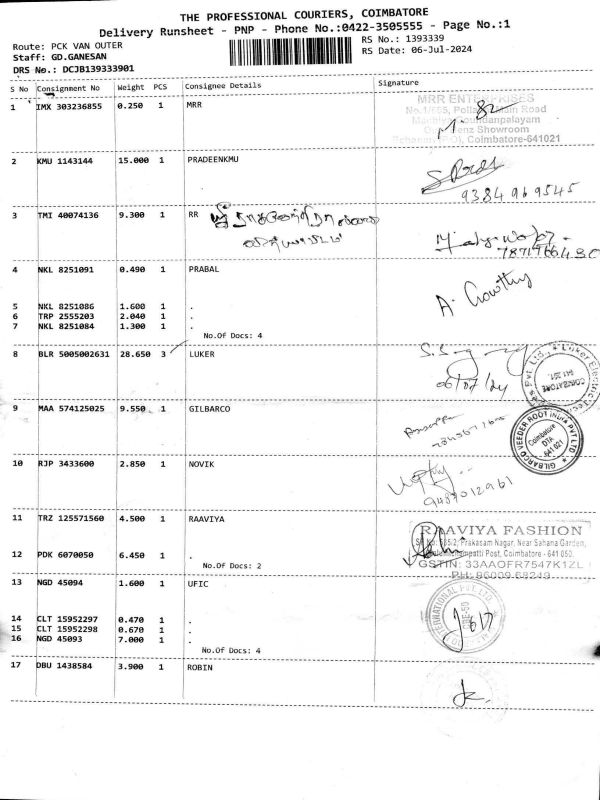 THE PROFESSIONAL COURIERS, COIMBATORE
Delivery Runsheet - PNP - Phone No.:0422-3505555 - Page No.:1
Route: PCK VAN OUTER
RS No.: 1393339
Staff: GD.GANESAN
RS Date: 06-Jul-2024
DRS No.: DCJB139333901
S No Consignment No Weight PCS Consignee Details Signature
1 IMX 303236855 0.250 1 MRR
MRR ENTERPRISES
Main Road
Showroom
Coimbatore-641021
2 KMU 1143144 15.000 1 PRADEENKMU
9384969545
3 TMI 40074136 9.300 1 RR
4 NKL 8251091 0.490 1 PRABAL
A. Crowthy
5 NKL 8251086 1.600 1 .
6 TRP 2555203 2.040 1 .
7 NKL 8251084 1.300 1 .
No.Of Docs: 4
8 BLR 5005002631 28.650 3 LUKER
06/07/24
COIMBATORE
641 201.
9 MAA 574125025 9.550 1 GILBARCO
GILBARCO VEEDER ROOT INDIA PVT LTD
Coimbatore
DTA
641 021
10 RJP 3433600 2.850 1 NOVIK
9487012961
11 TRZ 125571560 4.500 1 RAAVIYA
RAAVIYA FASHION
Prakasam Nagar, Near Sahana Garden,
Post, Coimbatore - 641 050.
GSTIN: 33AAOFR7547K1ZL
12 PDK 6070050 6.450 1 .
No.Of Docs: 2
13 NGD 45094 1.600 1 UFIC
14 CLT 15952297 0.470 1 .
15 CLT 15952298 0.670 1 .
16 NGD 45093 7.000 1 .
No.Of Docs: 4
17 DBU 1438584 3.900 1 ROBIN